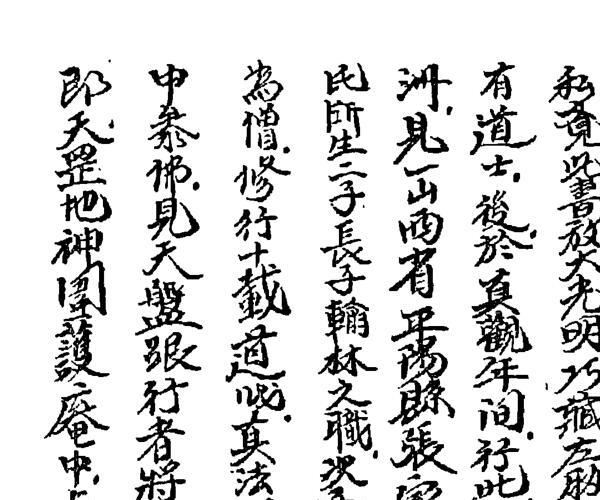 私覔此書放大光明巧藏左肋
有道士後於真觀年间行此
洲見一山西省平陽縣張家
氏所生二子長子翰林之職次子
為僧修行十載道成真法
中叅佛見天盤跟行者將
即天罡地神圍護庵中